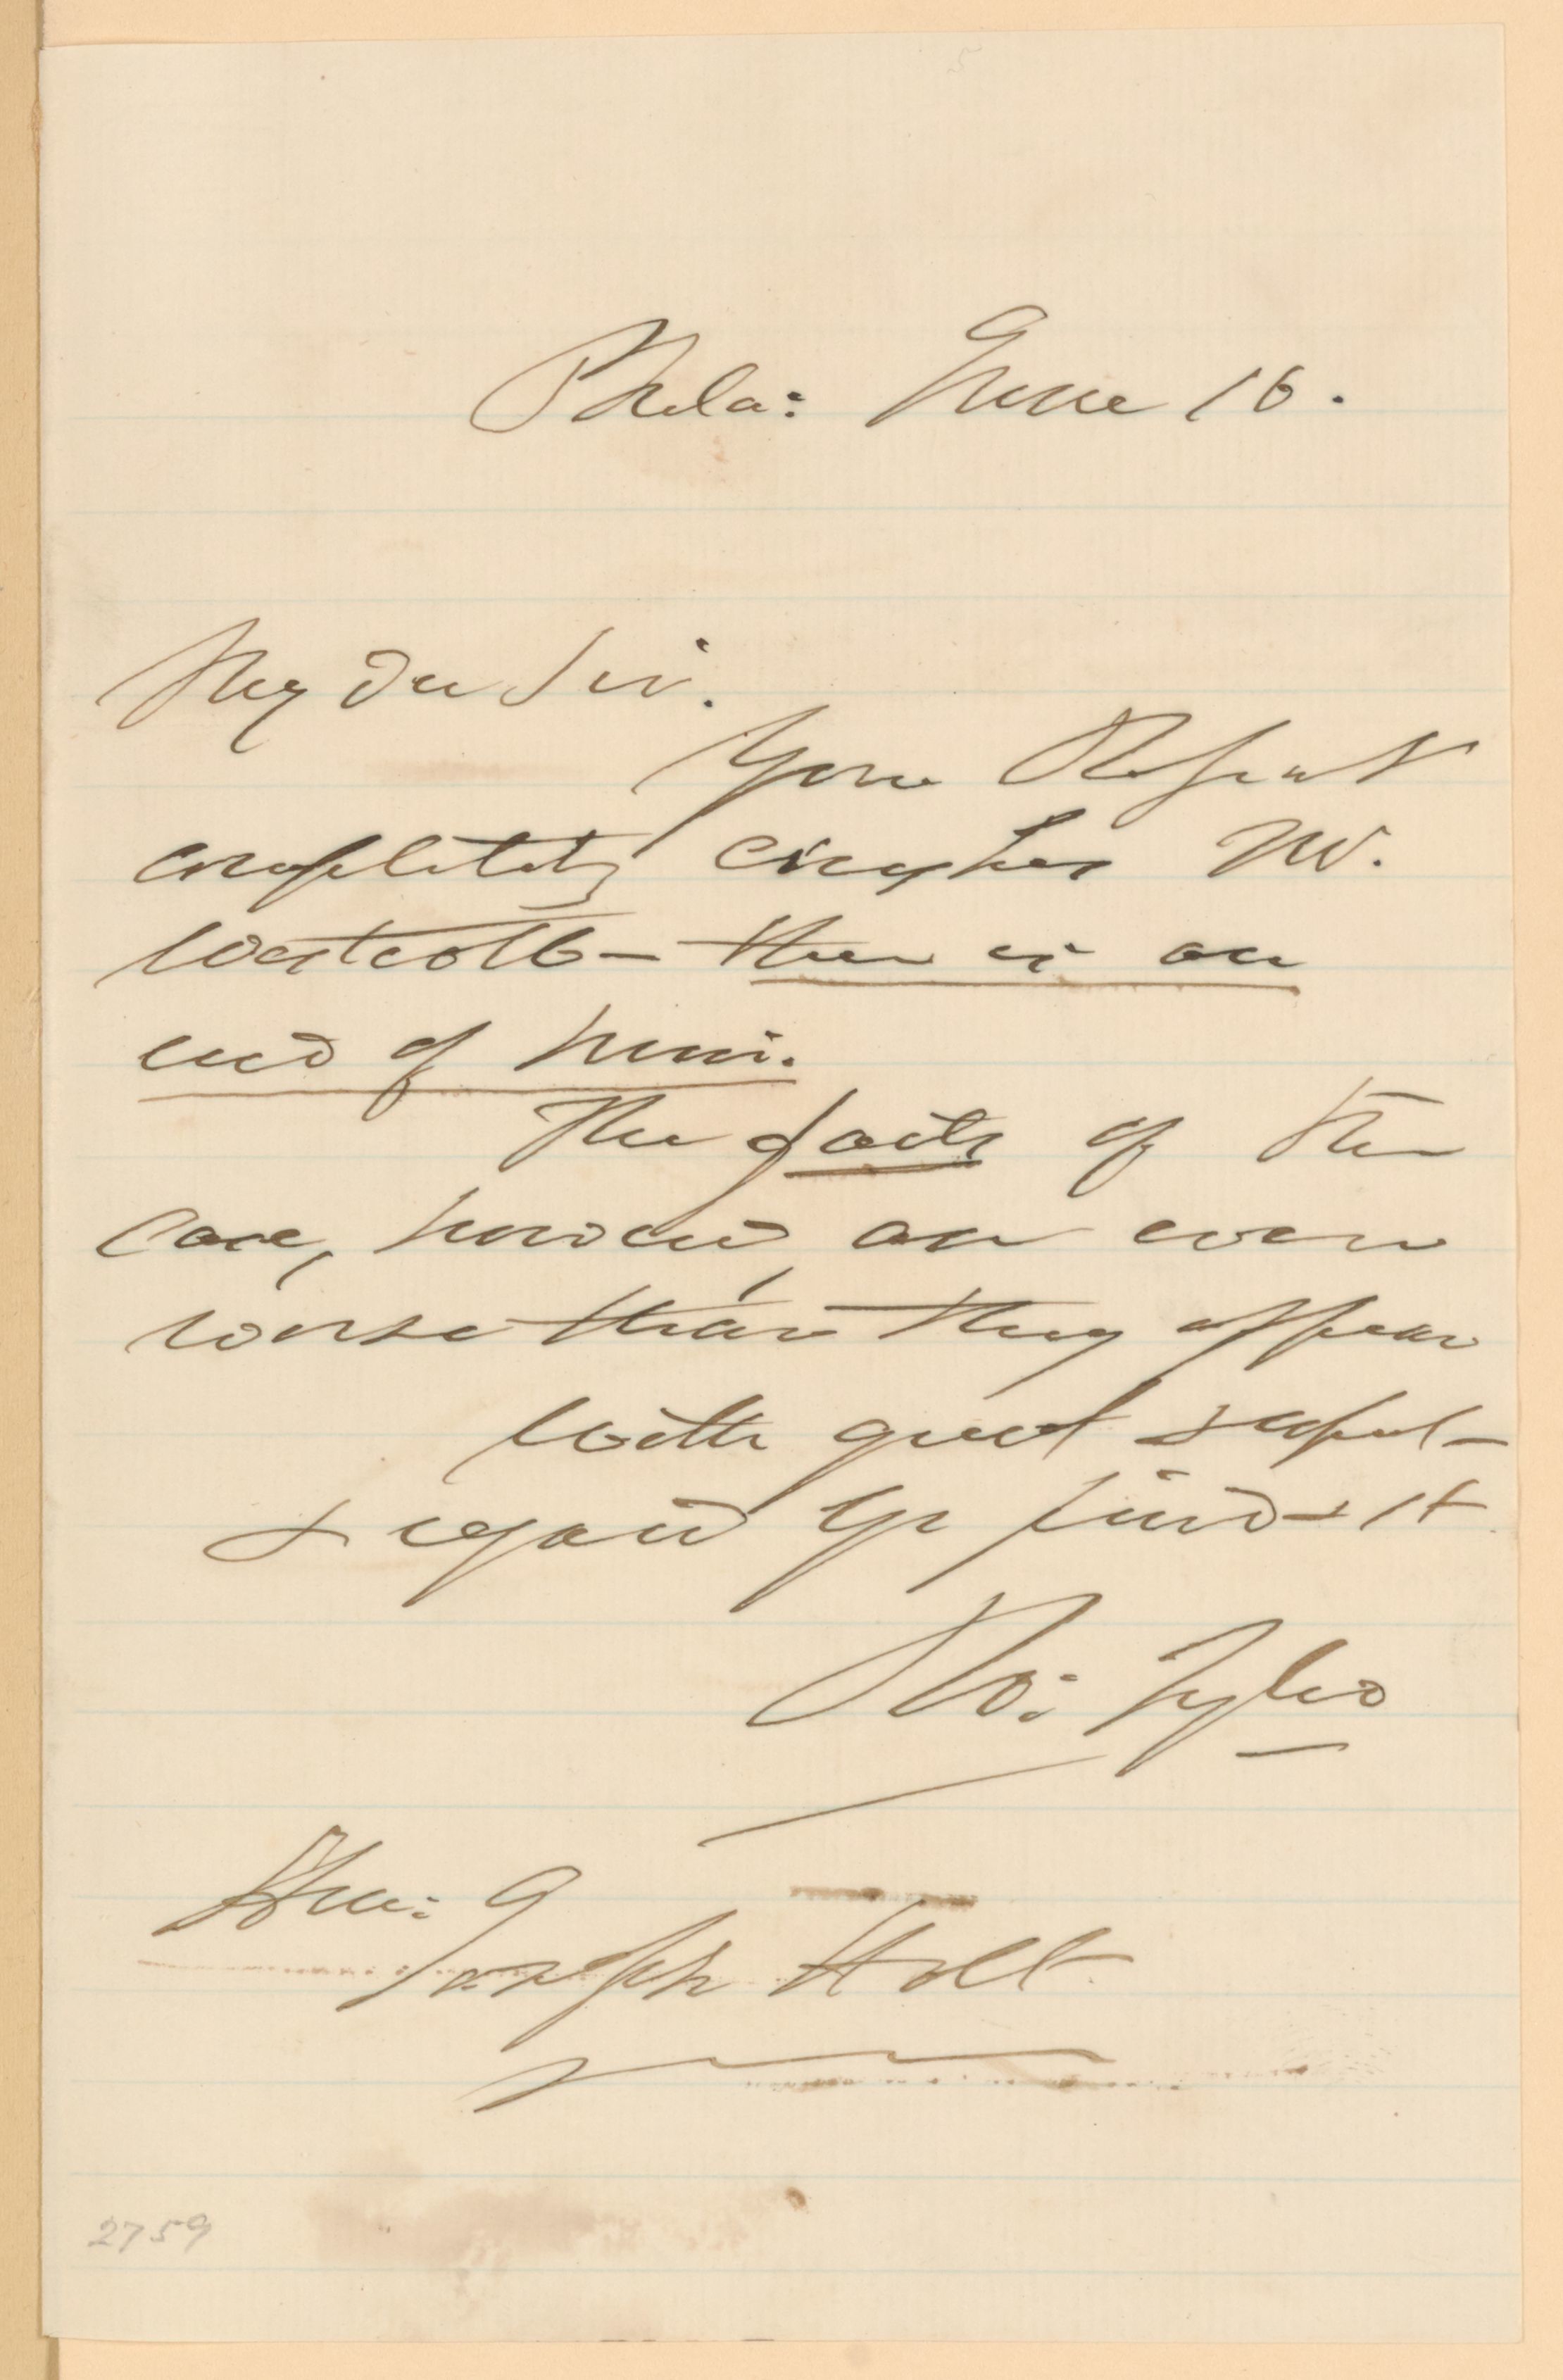 Phila: June 16.
My Dr Sir.
Your Report
completely crushes Mr.
Westcott - there is an
end of him.
The facts of the
Case, however, are even
worse than they appear
With great respect -
& regard Yr friend & st
Ro: Tyler
Hon: 
Joseph Holt
2759